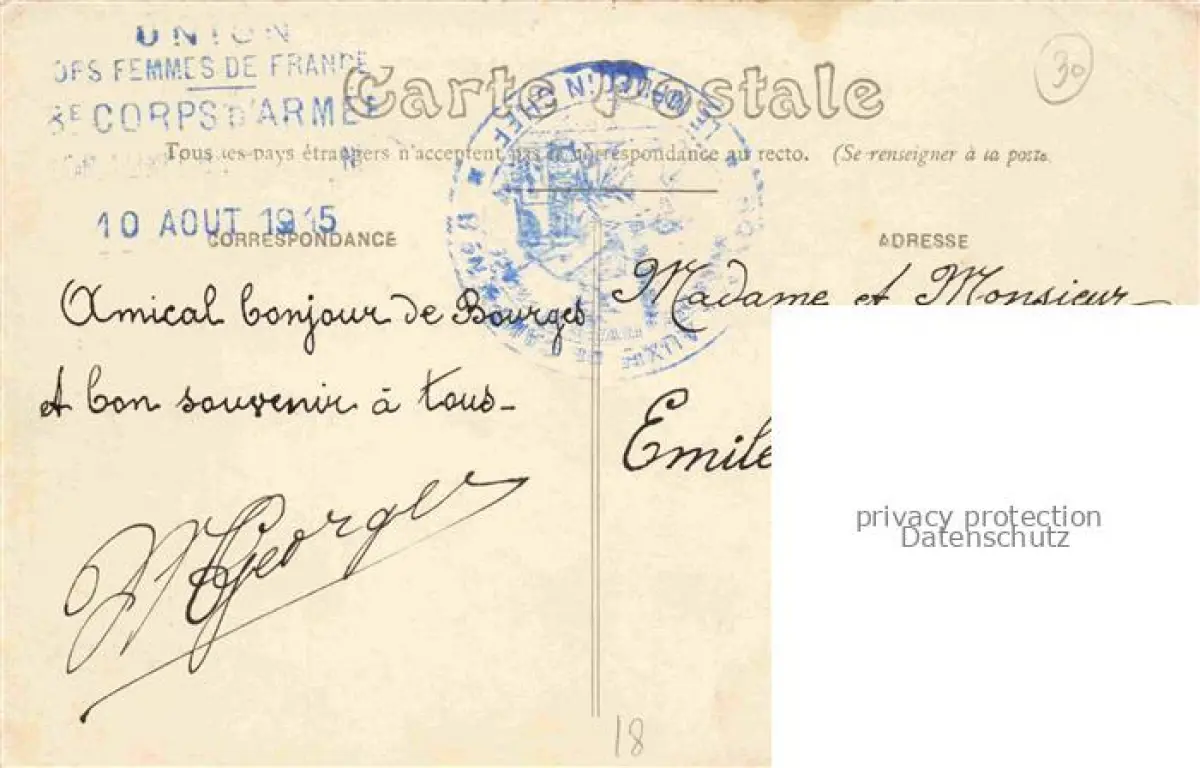 UNION
DES FEMMES DE FRANCE
8E CORPS D'ARMÉE
10 AOUT 1915
Carte Postale
30
Tous les pays étrangers n'acceptent pas la correspondance au recto. (Se renseigner à la poste.
LE MÉDECIN CHEF
AUXRE DE
CORRESPONDANCE
ADRESSE
Amical bonjour de Bourges
et bon souvenir à tous-
Georges
Madame et Monsieur
Emile
privacy protection
Datenschutz
18